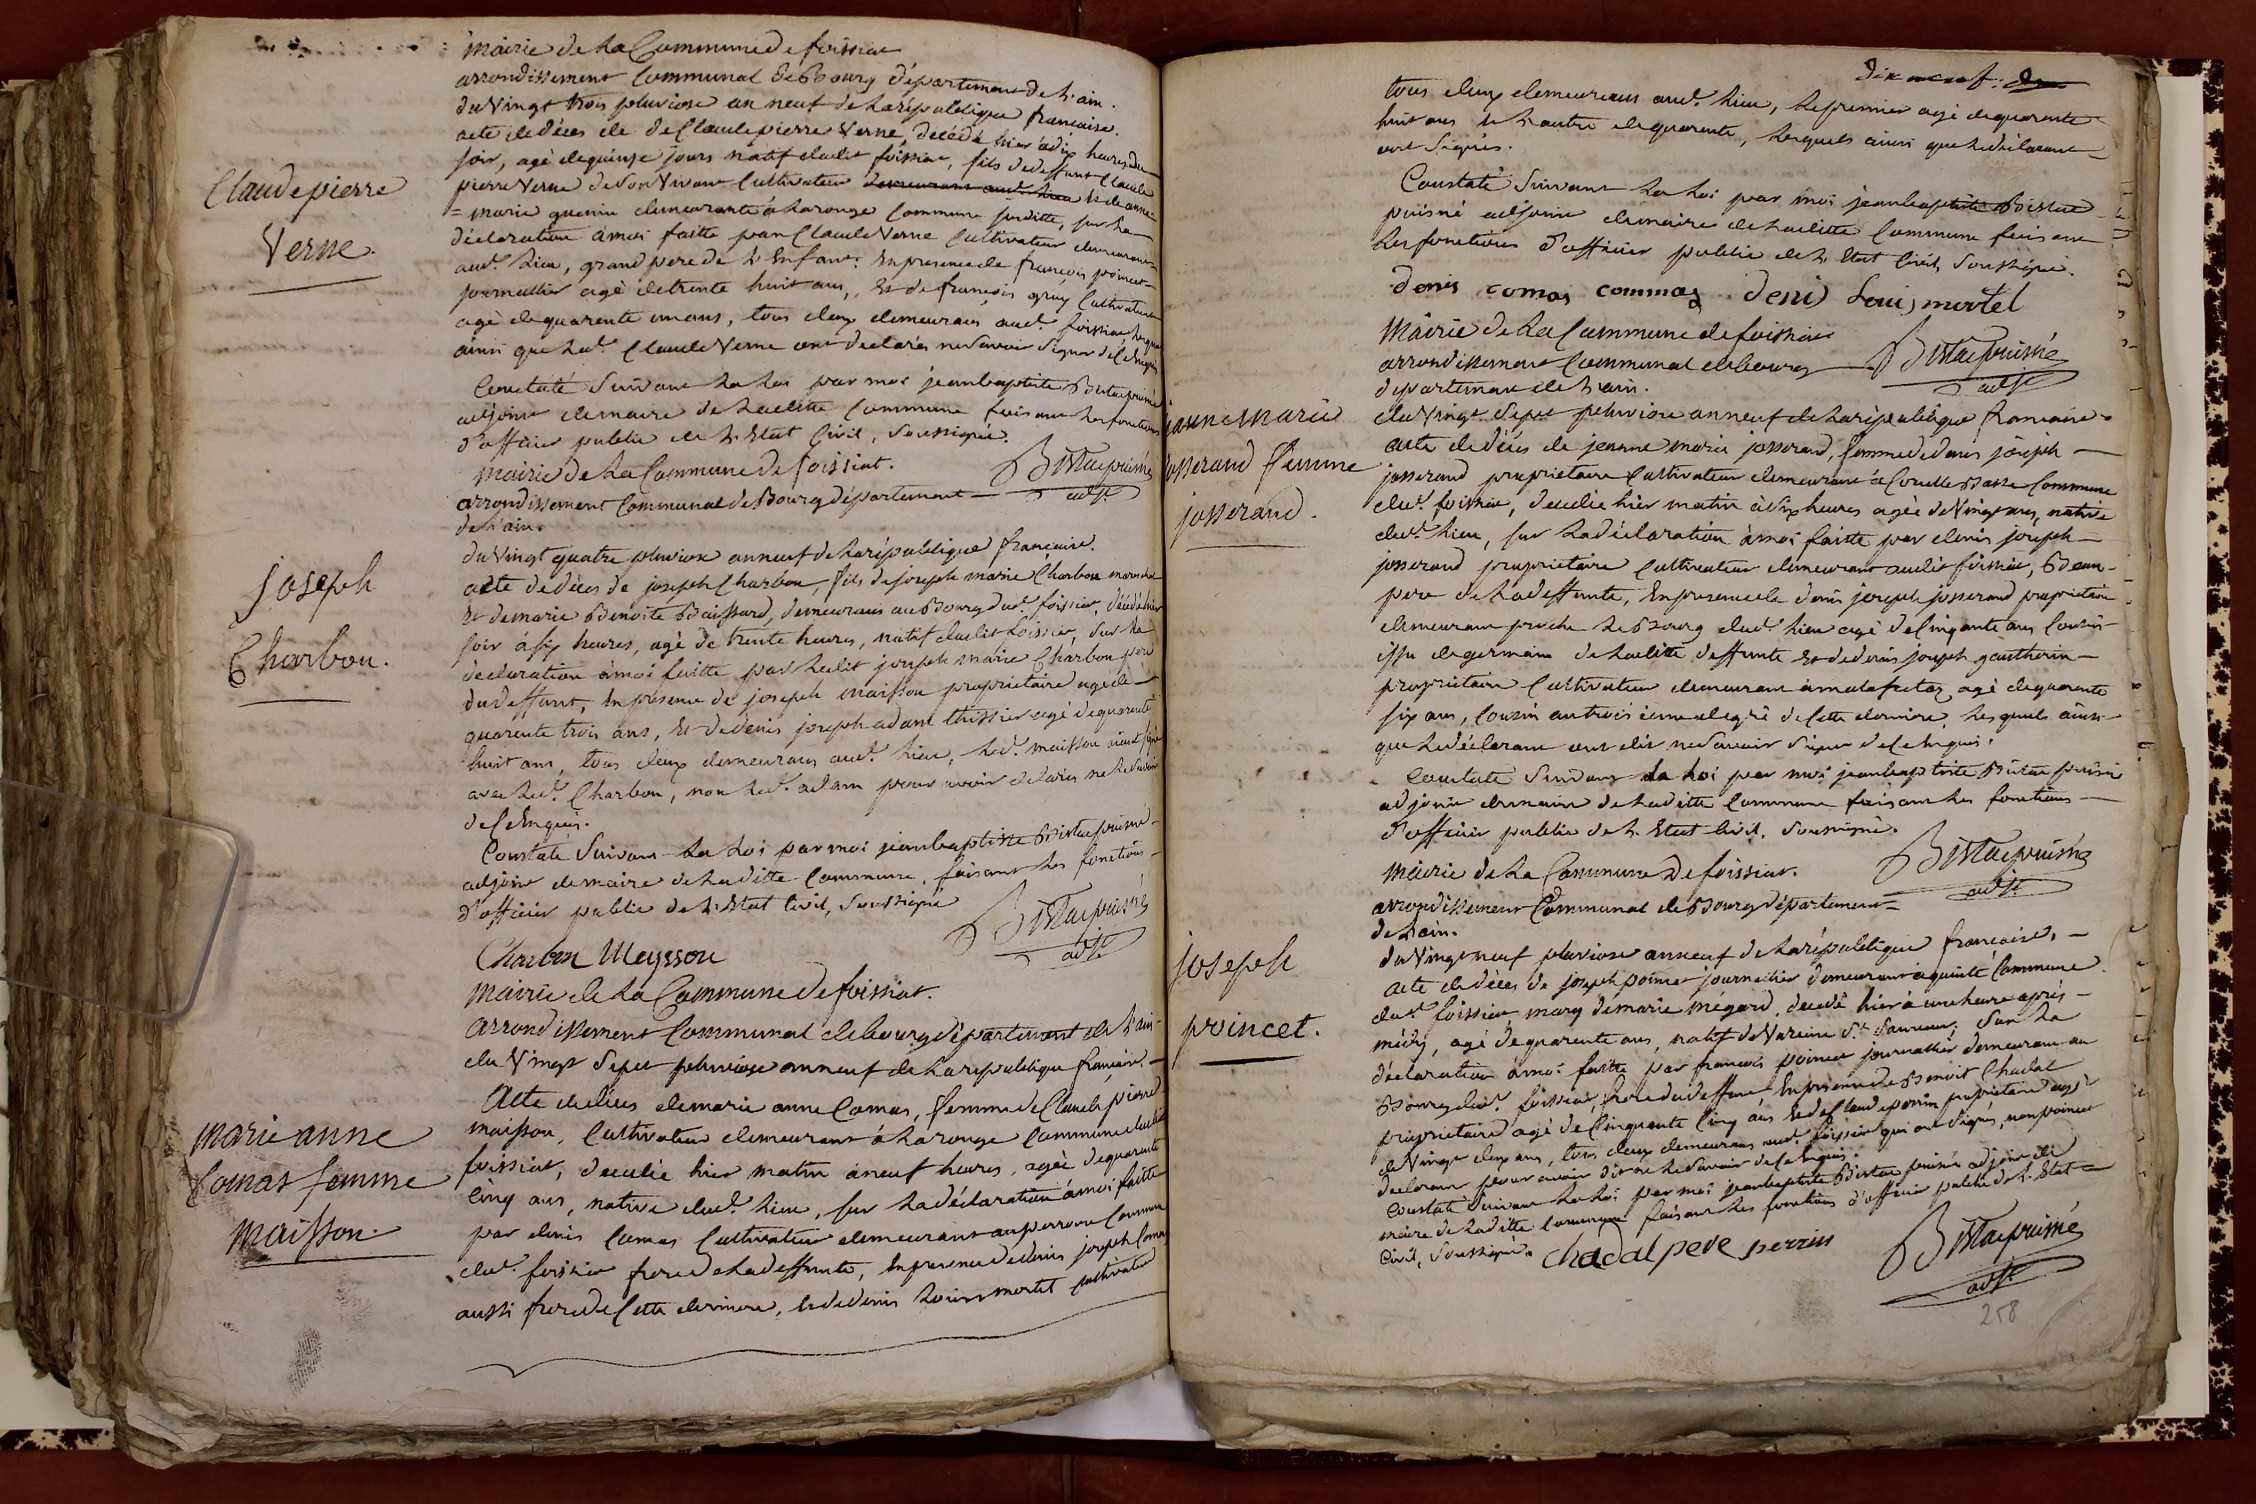 Mairie de La Commune de foissiat
arrondissement Communal de Bourg, département de L'ain.
du Vingt trois pluviose an neuf de La république francaise.
acte de décès de de Claude pierre Verne, décédé hier à dix heures du
soir, agé de quinze jours natif dudit foissiat, fils de deffunt Claude
pierre Verne de son Vivant Cultivateur demeurant aud. Lieu & de anne
= marie demeurante à La ronge Commune suditte, sur La
déclaration à moi faitte par Claude Verne Cultivateur demeurant
aud. Lieu, grand pere de L'Enfant. En presence de françois poincet
journallier agé de trente huit ans, Et de françois gruy Cultivateur
agé de quarente un ans, tous deux demeurans aud. foissiat, Lesquels
ainsi que Led. Claude Verne ont declarés ne Savoir Signer de Ce Enquis
Claude pierre
Verne.
Constaté Suivant La Loi par moi jean baptiste Bistac puisné
adjoint de maire de Laditte Commune faisant Les fonctions
d'officier public de L'Etat Civil, Soussigné.
Bistac puisné
adjt.
Mairie de La Commune de foissiat.
arrondissement Communal de Bourg département
de L'ain.
du Vingt quatre pluviose an neuf de La république francaise.
acte de décès de joseph Charbon, fils de joseph marie Charbon marechal
Et de marie Benoite Boissard, demeurans au Bourg dud. foissiat, décédé hier
soir à six heures, agé de trente heures, natif dudit foissiat, Sur La
déclaration à moi faitte par Ledit joseph marie Charbon pere
du deffunt, En présence de joseph maisson propriétaire agé de
quarente trois ans, Et de denis joseph adam tissier agé de quarente
huit ans, tous deux demeurans aud. Lieu, Led. maisson aiant signé
avec Led. Charbon, non Led. adam pour avoir declaré ne Le Savoir
de Ce Enquis.
joseph
Charbon.
Constaté Suivant La Loi par moi jean baptiste Bistac puisné
adjoint de maire de Laditte Commune, faisant Les fonctions
d'officier public de L'Etat Civil, Soussigné
Bistac puisné
adjt.
Charbon Meysson
Mairie de La Commune de foissiat.
arrondissement Communal de bourg département de L'ain
du Vingt Sept pluviose an neuf de La republique francaise.
Acte de décès de marie anne Comas, femme de Claude pierre
maisson, Cultivateur demeurant à La ronge Commune dudit
foissiat, décédée hier matin à neuf heures, agée de quarente
Cinq ans, native dud. Lieu, sur La déclaration à moi faitte
par denis Comas Cultivateur demeurant au perroux Commune
dud. foissiat frere de La deffunte, En presence de denis joseph Comas
aussi frere de Cette derniere, & de denis Louis mortel Cultivateur
marie anne
Comas femme
maisson.
dix neuf:
tous deux demeurans aud. Lieu, Le premier agé de quarente
huit ans & L'autre de quarente, Lesquels ainsi que Le déclarant
ont Signés.
Constaté Suivant La Loi par moi jean baptiste Bistac
puisné adjoint de maire de Laditte Commune faisant
Les fonctions d'officier public de L'Etat Civil, Soussigné.
denis comas commas deni Louis mortel
Bistac puisné
adjt.
Mairie de La Commune de foissiat
arrondissement Communal de bourg
département de L'ain.
du Vingt Sept pluviose an neuf de La république francaise.
acte de décès de jeanne marie josserand, femme de denis joseph
josserand propriétaire Cultivateur demeurant à Basse Commune
dud. foissiat, décédée hier matin à dix heures agée de Vingt ans, native
dud. Lieu, sur La déclaration à moi faitte par denis joseph
josserand proprietaire Cultivateur demeurant audit foissiat, Beau
pere de La deffunte, En presence de denis joseph josserand proprietaire
demeurant proche Le Bourg dud. Lieu agé de Cinquante ans Cousin
issu de germain de Laditte deffunte Et de denis joseph gautherin
proprietaire Cultivateur demeurant à malafretaz, agé de quarente
six ans, Cousin au troisième degré de Cette derniere, Lesquels ainsi
que Le déclarant ont dit ne Savoir Signer de Ce Enquis.
jeanne Marie
josserand femme
josserand.
Constaté Suivant La Loi par moi jean baptiste Bistac puisné
adjoint de maire de Laditte Commune faisant Les fonctions
d'officier public de L'Etat Civil, Soussigné.
Bistac puisné
adjt.
Mairie de La Commune de foissiat.
arrondissement Communal de Bourg département
de L'ain.
du Vingt neuf pluviose an neuf de La république francaise,
acte de décès de joseph poincet journallier demeurant à Commune
dud. foissiat mary de marie mégard, decedé hier à une heure après
midy, agé de quarente ans, natif de Vareine St. Sauveur, Sur La
déclaration à moi faitte par francois poincet journallier demeurant au
Bourg dud. foissiat, frere du deffunt, En presence de Benoit Chadal
propriétaire agé de Cinquante Cinq ans Et de Claude perrin proprietaire agé
de Vingt deux ans, tous deux demeurans aud. foissiat qui ont Signés, non poincet
declarant pour avoir dit ne Le Savoir de Ce Enquis.
joseph
poincet.
Constaté Suivant La Loi par moi jean baptiste Bistac puisné adjoint de
maire de Laditte Commune faisant Les fonctions d'officier public de L'Etat
Civil, Soussigné.
chadal pere perrin
Bistac puisné
adjt.
258